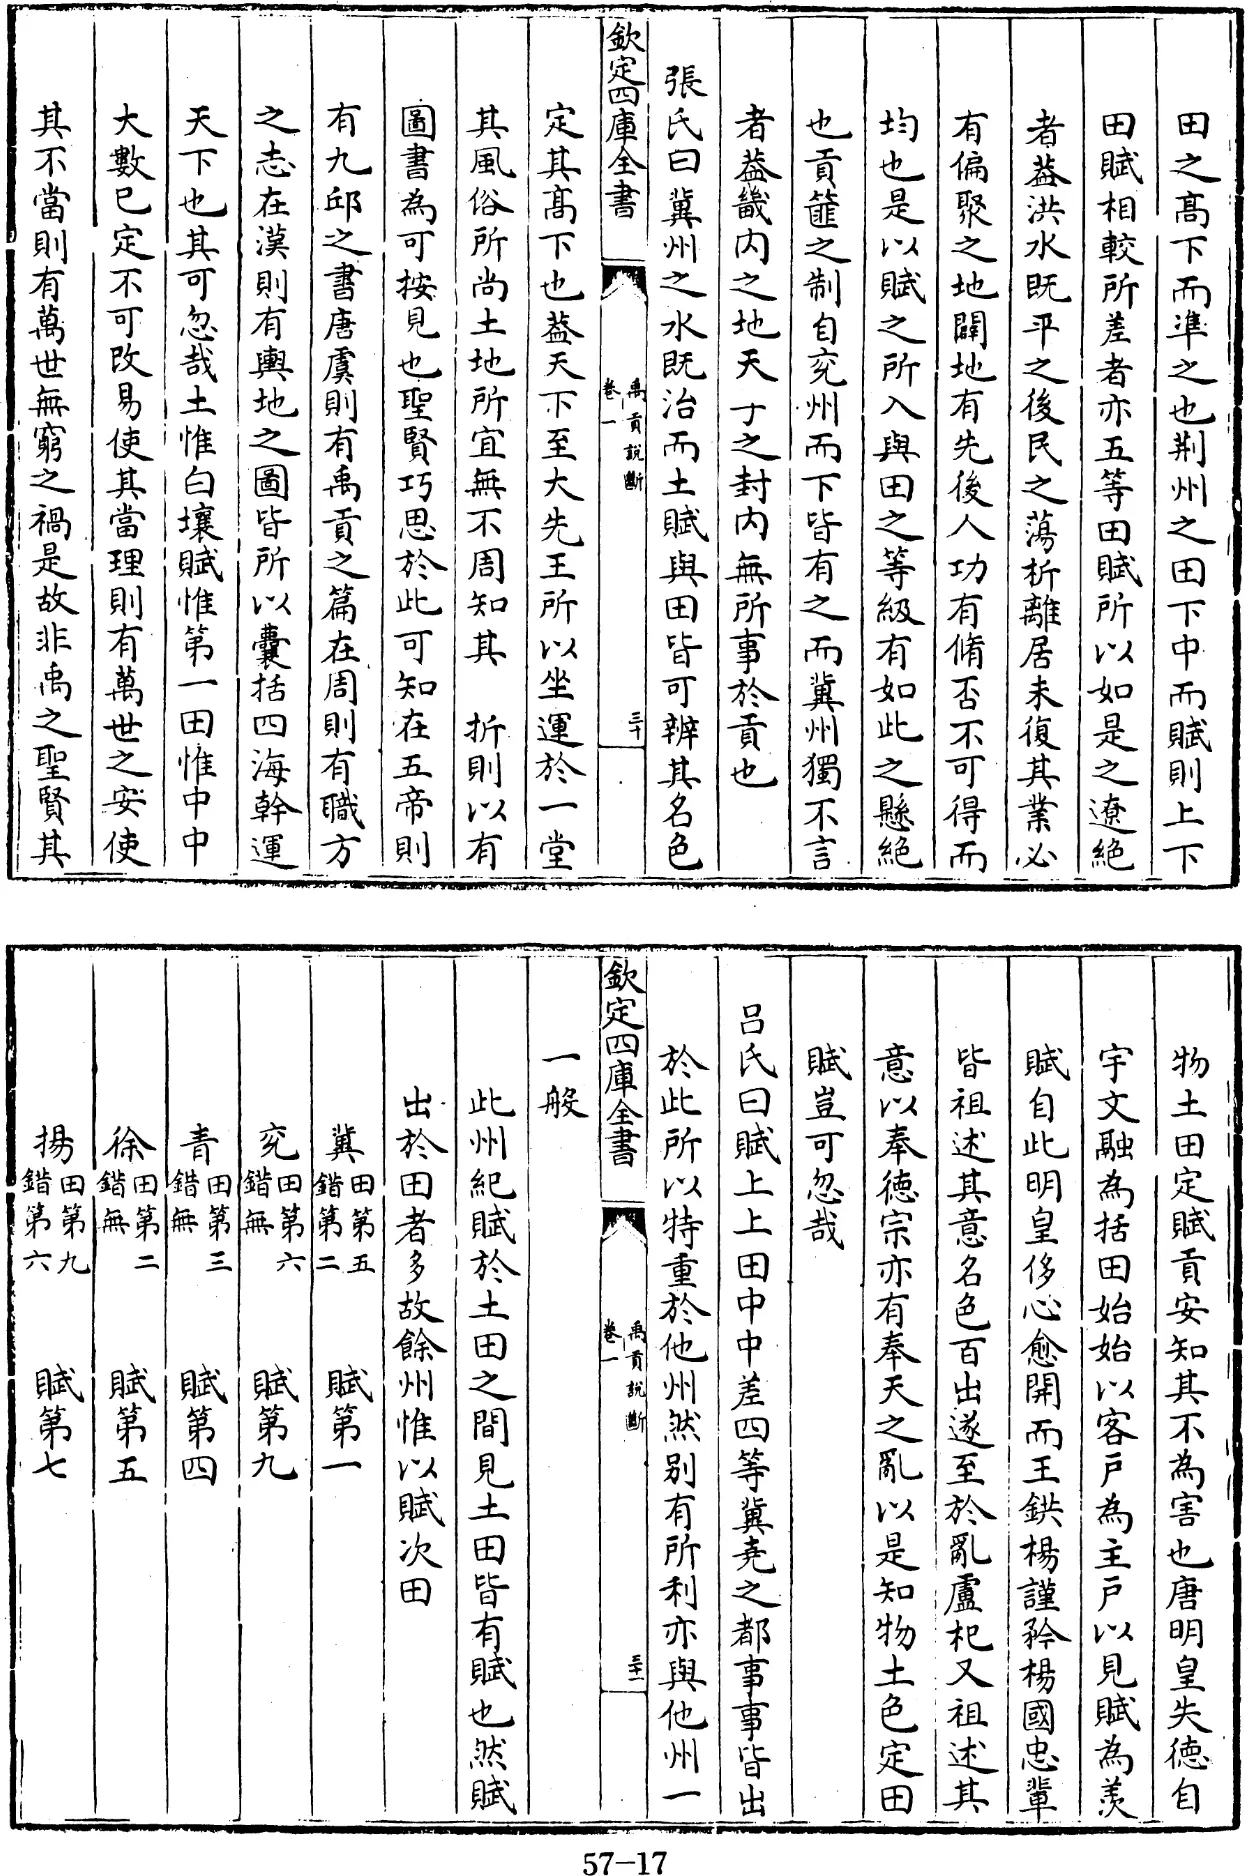 田之髙下而準之也荆州之田下中而賦則上下
田賦相較所差者亦五等田賦所以如是之遼絶
者葢洪水既平之後民之蕩析離居未復其業必
有偏聚之地闢地有先後人功有脩否不可得而
均也是以賦之所入與田之等級有如此之懸絶
也貢篚之制自兖州而下皆有之而冀州獨不言
者葢畿内之地天子之封内無所事於貢也
張氏曰冀州之水既治而土賦與田皆可辨其名色
欽定四庫全書
禹貢說斷
卷一
三十
定其髙下也葢天下至大先王所以坐運於一堂
其風俗所尚土地所宜無不周知其 折則以有
圖書為可按見也聖賢巧思於此可知在五帝則
有九邱之書唐虞則有禹貢之篇在周則有職方
之志在漢則有輿地之圖皆所以囊括四海幹運
天下也其可忽哉土惟白壤賦惟第一田惟中中
大數已定不可改易使其當理則有萬世之安使
其不當則有萬世無窮之禍是故非禹之聖賢其
物土田定賦貢安知其不為害也唐明皇失德自
宇文融為括田始始以客戸為主戸以見賦為羨
賦自此明皇侈心愈開而王鉷楊謹矜楊國忠輩
皆祖述其意名色百出遂至於亂盧杞又祖述其
意以奉德宗亦有奉天之亂以是知物土色定田
賦豈可忽哉
吕氏曰賦上上田中中差四等冀堯之都事事皆出
於此所以特重於他州然别有所利亦與他州一
欽定四庫全書
禹貢說斷
卷一
三十一
一般
此州紀賦於土田之間見土田皆有賦也然賦
出於田者多故餘州惟以賦次田
冀 田第五 錯第二 賦第一
兖 田第六 錯無 賦第九
青 田第三 錯無 賦第四
徐 田第二 錯無 賦第五
揚 田第九 錯第六 賦第七
57-17